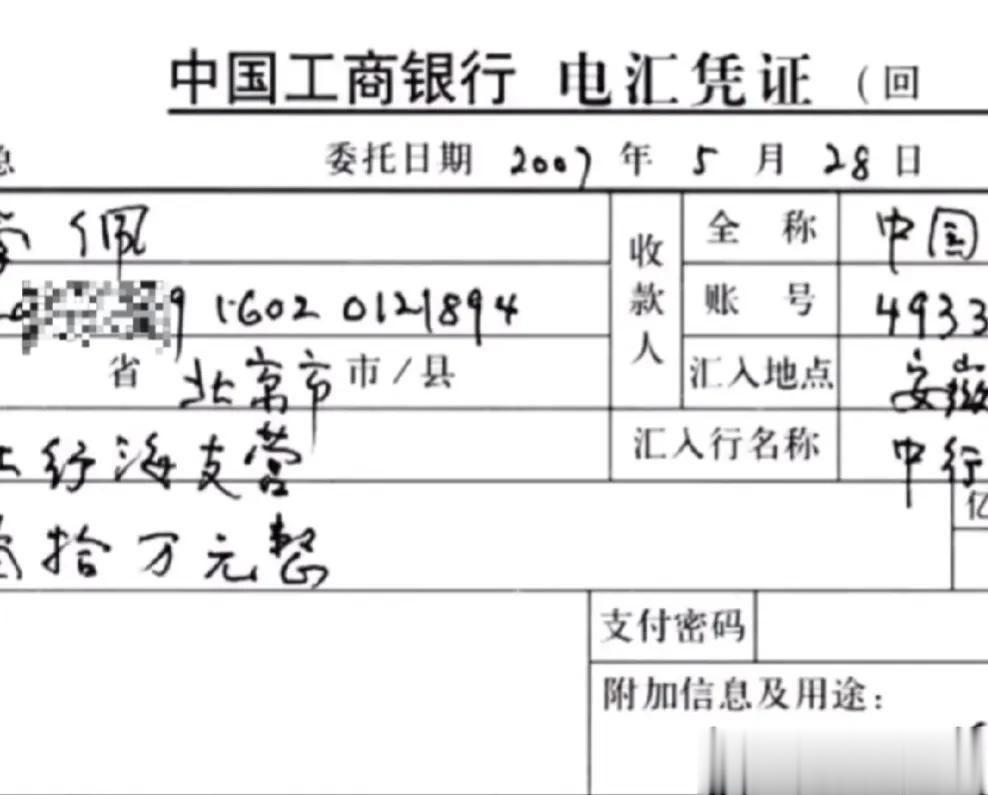 中国工商银行 电汇凭证 (回
急 委托日期 2007 年 5 月 28 日
佩 收款人 全称 中国
91602 0121894 账号 4933
省 北京市 市/县 汇入地点 安徽
行海支营 汇入行名称 中行
亿
壹拾万元整
支付密码
附加信息及用途: